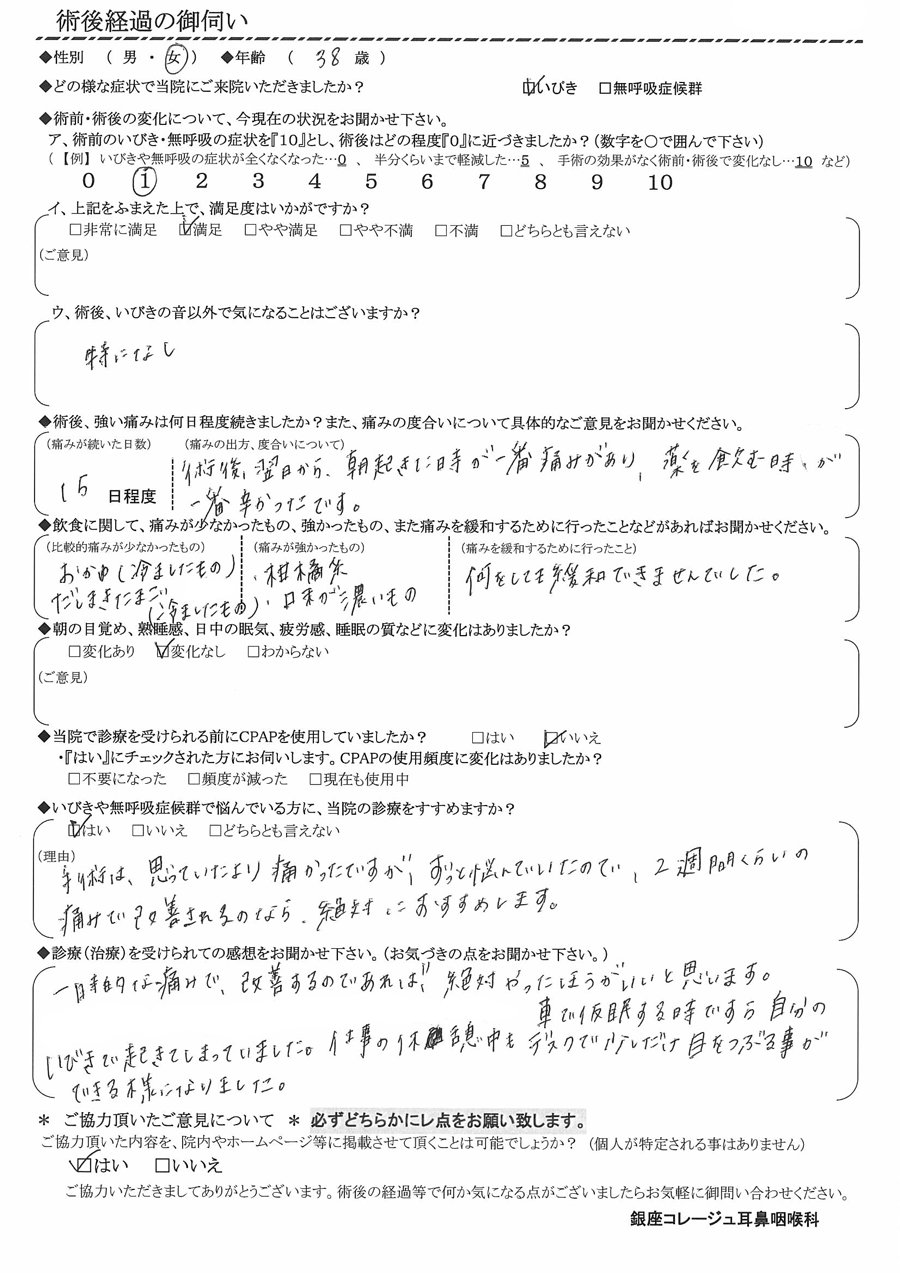 術後経過の御伺い
◆性別 ( 男 ・ 女 ) ◆年齢 ( 38 歳 )
◆どの様な症状で当院にご来院いただきましたか? ☑いびき □無呼吸症候群
◆術前・術後の変化について、今現在の状況をお聞かせ下さい。
ア、術前のいびき・無呼吸の症状を『10』とし、術後はどの程度『0』に近づきましたか?(数字を〇で囲んで下さい)
(【例】 いびきや無呼吸の症状が全くなくなった…0 、 半分くらいまで軽減した…5 、 手術の効果がなく術前・術後で変化なし…10 など)
0 1 2 3 4 5 6 7 8 9 10
イ、上記をふまえた上で、満足度はいかがですか?
□非常に満足 ☑満足 □やや満足 □やや不満 □不満 □どちらとも言えない
(ご意見)
ウ、術後、いびきの音以外で気になることはございますか?
特になし
◆術後、強い痛みは何日程度続きましたか?また、痛みの度合いについて具体的なご意見をお聞かせください。
(痛みが続いた日数) (痛みの出方、度合いについて)
術後、翌日から、朝起きた時が一番痛みがあり、薬を飲む時が
15 日程度
一番辛かったです。
◆飲食に関して、痛みが少なかったもの、強かったもの、また痛みを緩和するために行ったことなどがあればお聞かせください。
(比較的痛みが少なかったもの) (痛みが強かったもの) (痛みを緩和するために行ったこと)
おかゆ(冷ましたもの) ・柑橘系 何をしても緩和できませんでした。
だしまきたまご(冷ましたもの) ・味が濃いもの
◆朝の目覚め、熟睡感、日中の眠気、疲労感、睡眠の質などに変化はありましたか?
□変化あり ☑変化なし □わからない
(ご意見)
◆当院で診療を受けられる前にCPAPを使用していましたか? □はい ☑いいえ
・『はい』にチェックされた方にお伺いします。CPAPの使用頻度に変化はありましたか?
□不要になった □頻度が減った □現在も使用中
◆いびきや無呼吸症候群で悩んでいる方に、当院の診療をすすめますか?
☑はい □いいえ □どちらとも言えない
(理由)
手術は、思っていたより痛かったですが、ずっと悩んでいたので、2週間くらいの
痛みで改善されるのなら、絶対におすすめします。
◆診療(治療)を受けられての感想をお聞かせ下さい。(お気づきの点をお聞かせ下さい。)
一時的な痛みで、改善するのであれば、絶対やったほうがいいと思います。
車で仮眠する時ですら自分の
いびきで起きてしまっていました。仕事の休憩中もデスクで少しだけ目をつぶる事が
できる様になりました。
* ご協力頂いたご意見について * 必ずどちらかにレ点をお願い致します。
ご協力頂いた内容を、院内やホームページ等に掲載させて頂くことは可能でしょうか? (個人が特定される事はありません)
☑はい □いいえ
ご協力いただきましてありがとうございます。術後の経過等で何か気になる点がございましたらお気軽に御問い合わせください。
銀座コレージュ耳鼻咽喉科